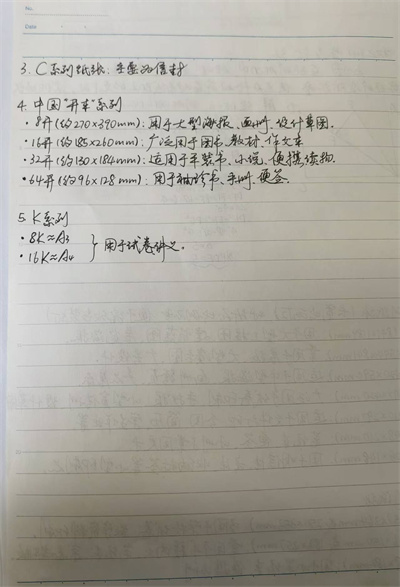 No.
Date
3. C系列纸张：主要为信封
4. 中国"开本"系列
·8开(约270×390mm)：用于大型海报、画册、设计草图。
·16开(约185×260mm)：广泛用于图书、教材、作文本
·32开(约130×184mm)：适用于平装书、小说、便携读物.
·64开(约96×128mm)：用于袖珍书、手册、便签.
5. K系列
·8K≈A3
·16K≈A4 } 用于试卷讲义。